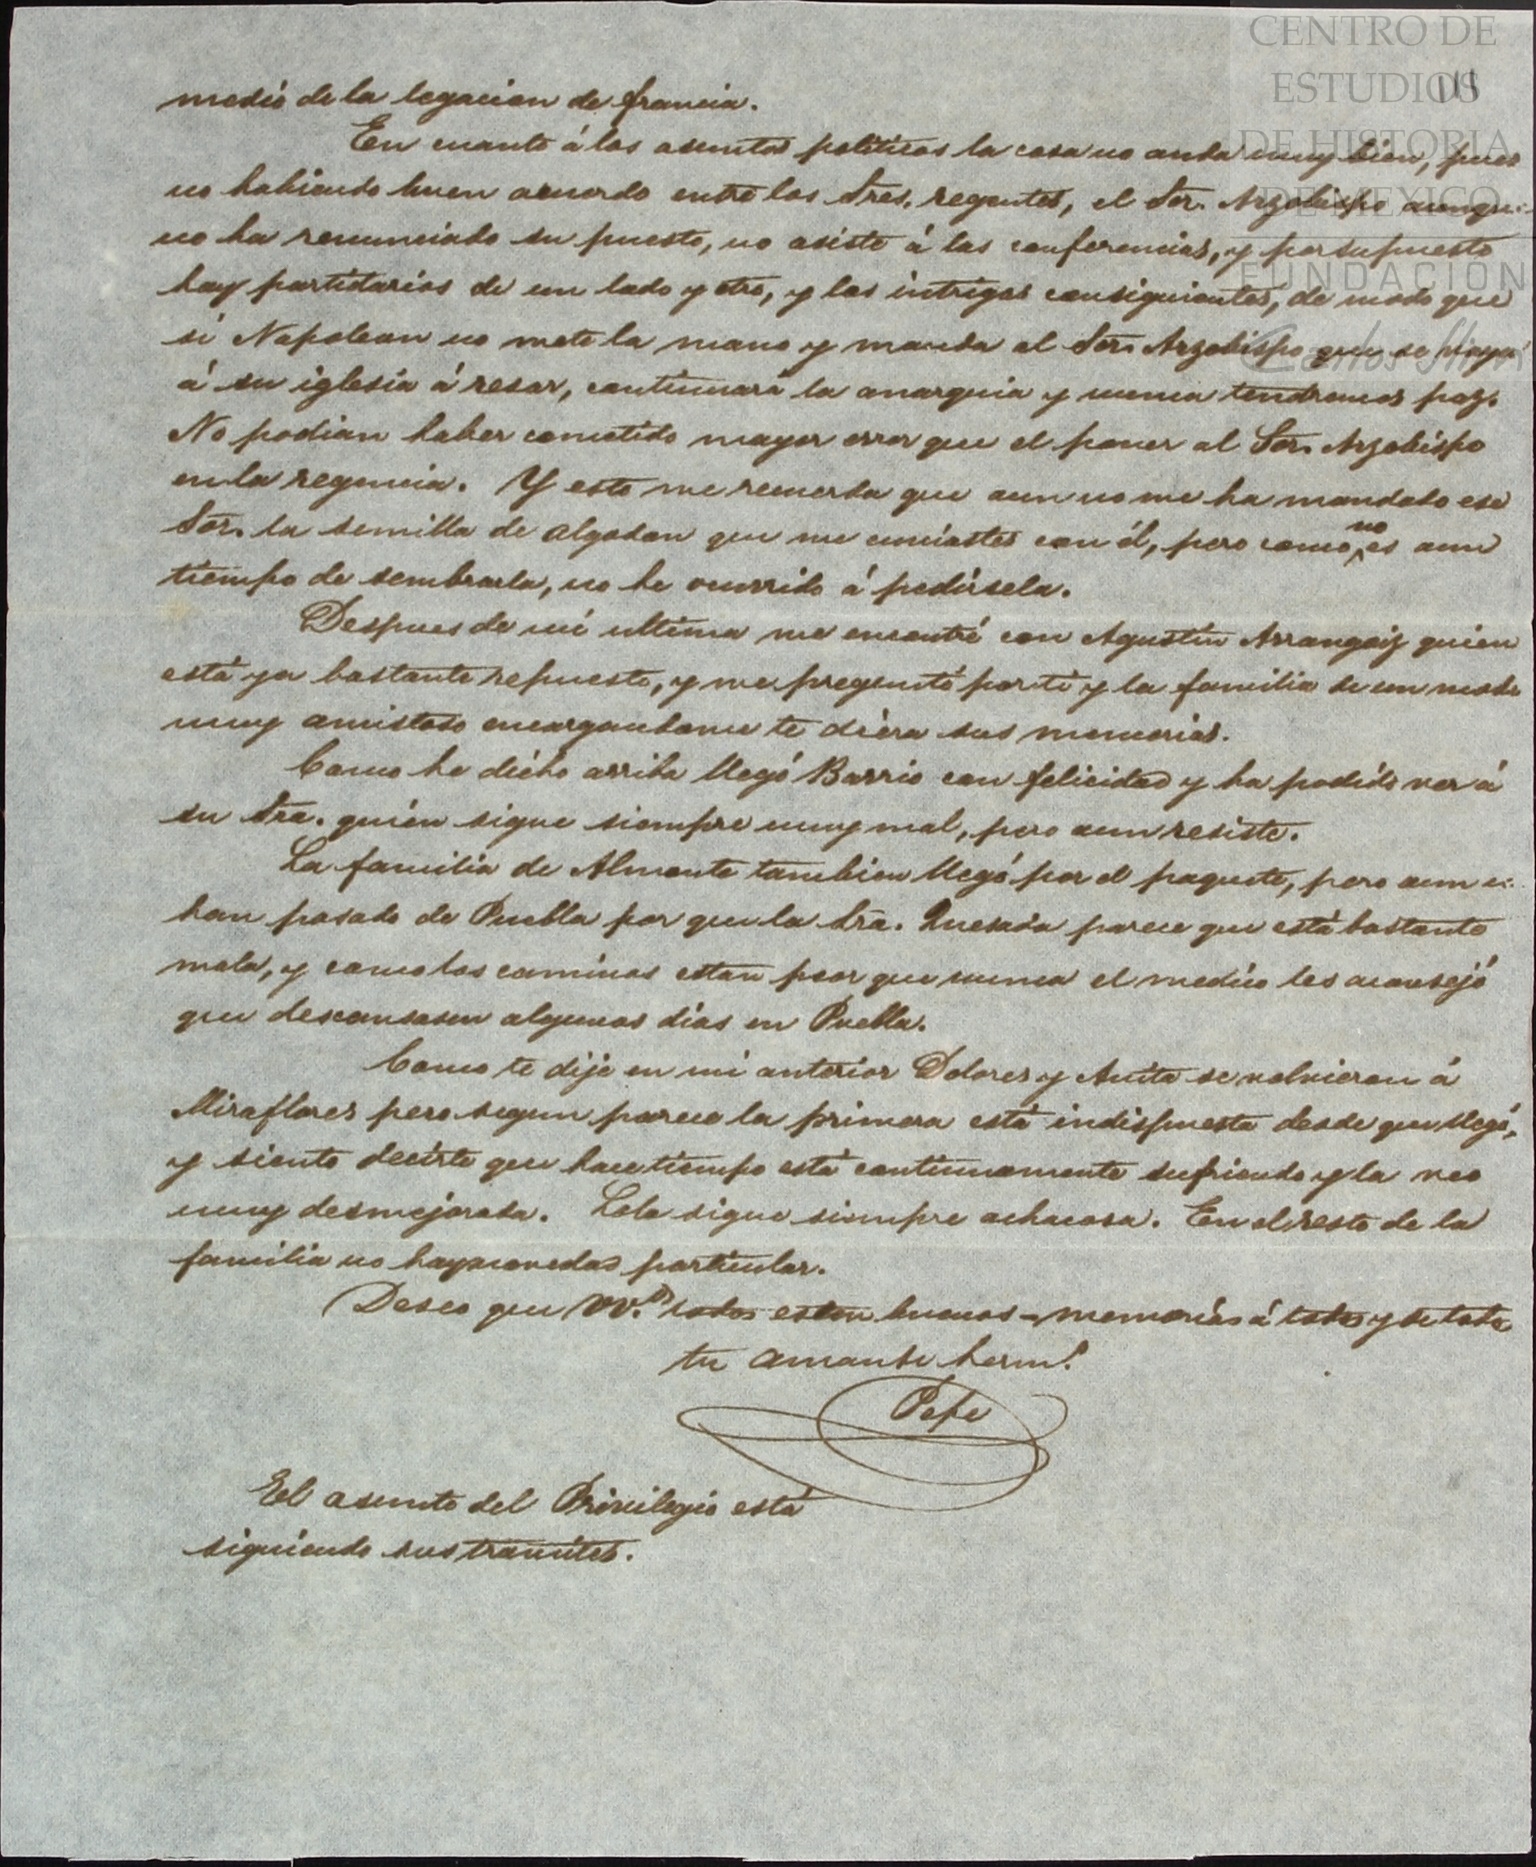 CENTRO DE
ESTUDIOS
DE HISTORIA
DE MEXICO
FUNDACIÓN
Carlos Slim
111
medio de la legacion de francia.
En cuanto á los asuntos politicos la cosa no anda muy bien, pues
no habiendo buen acuerdo entre los Sres. regentes, el Sor. Arzobispo aunque
no ha renunciado su puesto, no asiste á las conferencias, y por supuesto
hay partidarios de un lado y otro, y las intrigas consiguientes, de modo que
si Napoleon no mete la mano y manda al Sor. Arzobispo que se vaya
á su iglesia á resar, continuará la anarquia y nunca tendremos paz.
No podian haber cometido mayor error que el poner al Sor. Arzobispo
en la regencia. Y esto me recuerda que aun no me ha mandado ese
Sor. la semilla de algodon que me enviastes con él, pero como no es aun
tiempo de sembrarla, no he ocurrido á pedirsela.
Despues de mi ultima me encontré con Agustin Arrangoiz quien
está ya bastante repuesto, y me preguntó por ti y la familia de un modo
muy amistoso encargandome te diera sus memorias.
Como he dicho arriba llegó Barrio con felicidad y ha podido ver á
su Sra. quien sigue siempre muy mal, pero aun resiste.
La familia de Almonte tambien llegó por el paquete, pero aun no
han pasado de Puebla por que la Sra. Quesada parece que está bastante
mala, y como los caminos estan peor que nunca el medico les aconsejó
que descansasen algunos dias en Puebla.
Como te dije en mi anterior Dolores y Anita se volvieron á
Miraflores pero segun parece la primera está indispuesta desde que llegó,
y siento decirte que hace tiempo está continuamente sufriendo y la veo
muy desmejorada. Lola sigue siempre achacosa. En el resto de la
familia no hay novedad particular.
Deseo que VV.s todos esten buenos - memorias á todos y de todos
tu amante herm.o
Pepe
El asunto del Privilegio está
siguiendo sus tramites.